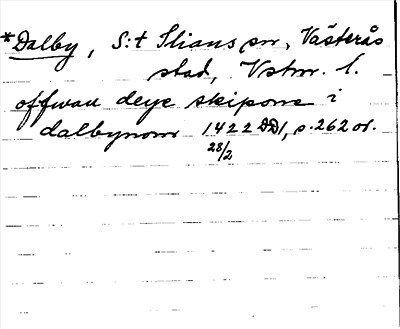 *Dalby, S:t Ilians sn, Västerås
stad, Vstm. l.
offwan deye skipone i
dalbynom 1422 DD1, s. 262 or.
28/2